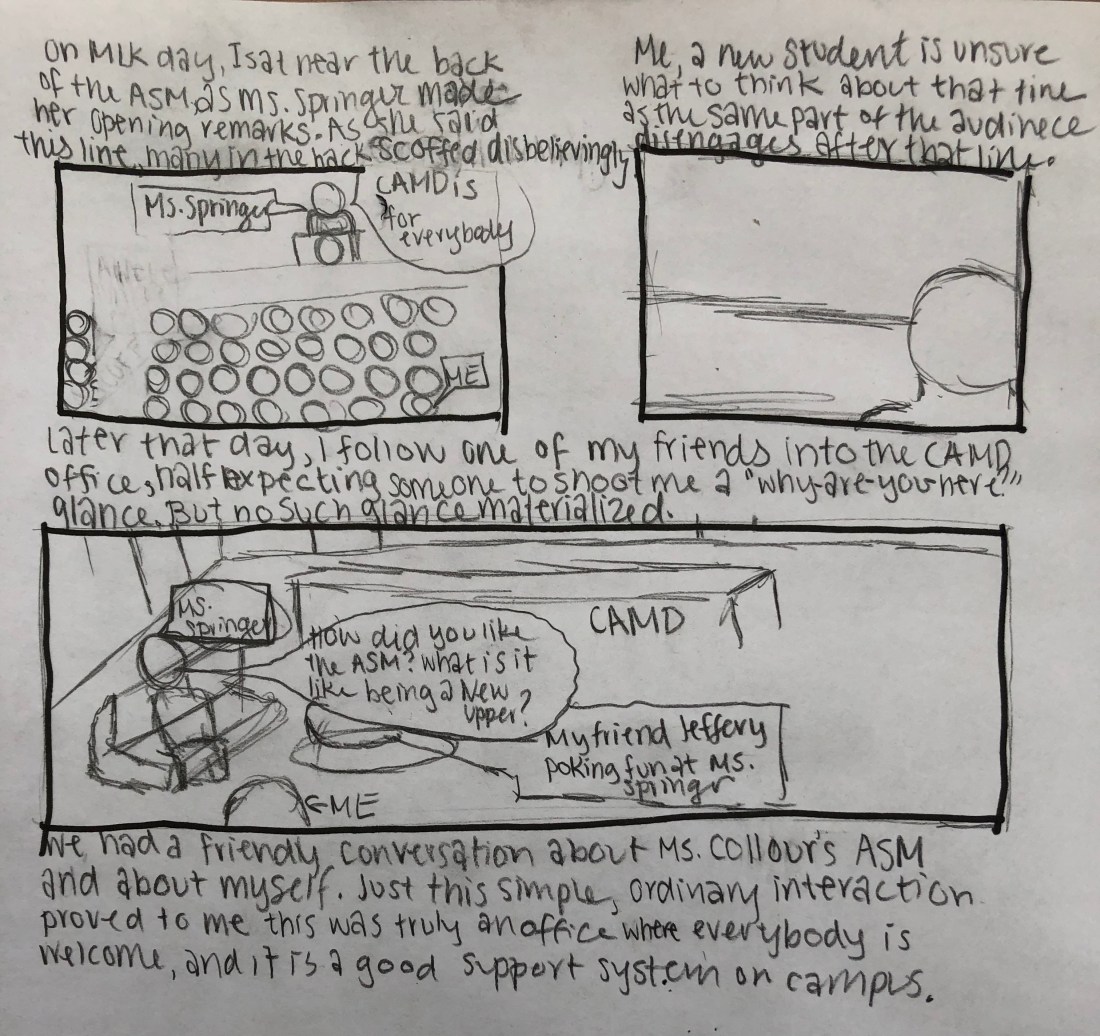 On MLK day, I sat near the back
of the ASM as Ms. Springer made
her opening remarks. As she said
this line, many in the back scoffed disbelievingly
Ms. Springer
CAMD is
for
everybody
ME
Me, a new student is unsure
what to think about that line
as the same part of the audinece
disengages after that line.
Later that day, I follow one of my friends into the CAMD
office, half expecting someone to shoot me a "why-are-you-here?"
glance. But no such glance materialized.
Ms.
Springer
How did you like
the ASM? What is it
like being a New
Upper?
CAMD
My friend Jeffery
poking fun at Ms.
Springr
←ME
We had a friendly conversation about Ms. Collour's ASM
and about myself. Just this simple, ordinary interaction
proved to me this was truly an office where everybody is
welcome, and it is a good support system on campus.